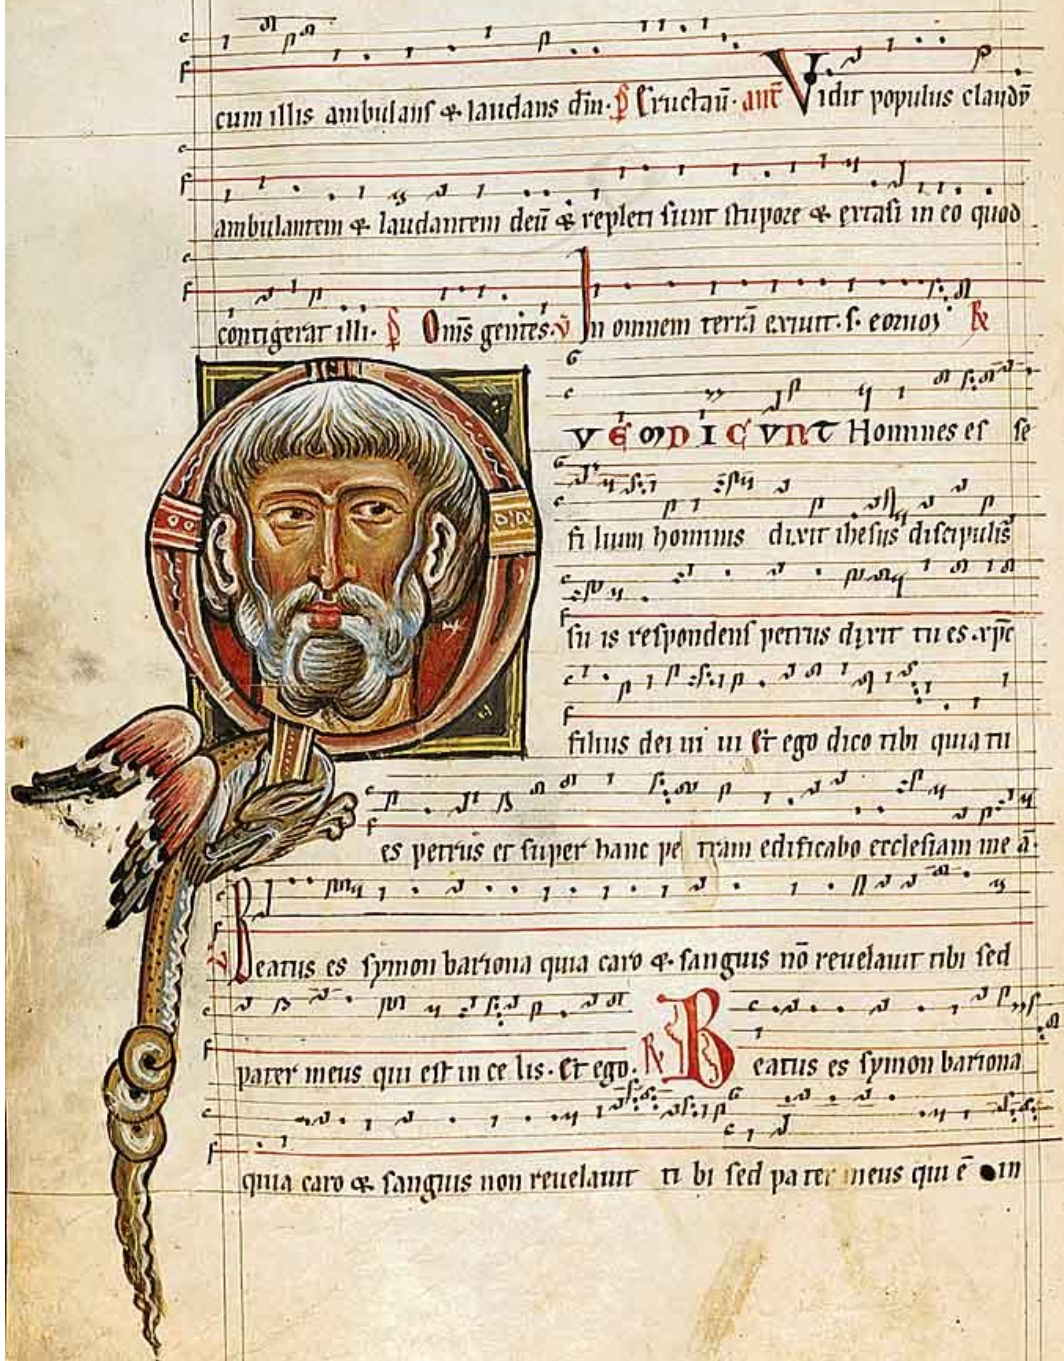 cum illis ambulans & laudans dm̄. P̄ Eructaū. ant̄ Vidit populus claudū
ambulantem & laudantem deū & repleti sunt stupore & extasi in eo quod
contigerat illi. P̄ Om̄s gentes. v̄ In omnem terrā exiuit. s. eorum. R̄
QVEM DICVNT Homines es se
fi lium hominis dixit ihesus discipulis
su is respondens petrus dixit tu es xpc̄
filius dei ui ui Et ego dico tibi quia tu
es petrus et super hanc pe tram edificabo ecclesiam me ā.
v̄ Beatus es symon bariona quia caro & sanguis nō reuelauit tibi sed
pater meus qui est in ce lis. Et ego. R̄ Beatus es symon bariona
quia caro & sanguis non reuelauit ti bi sed pa ter meus qui ē in